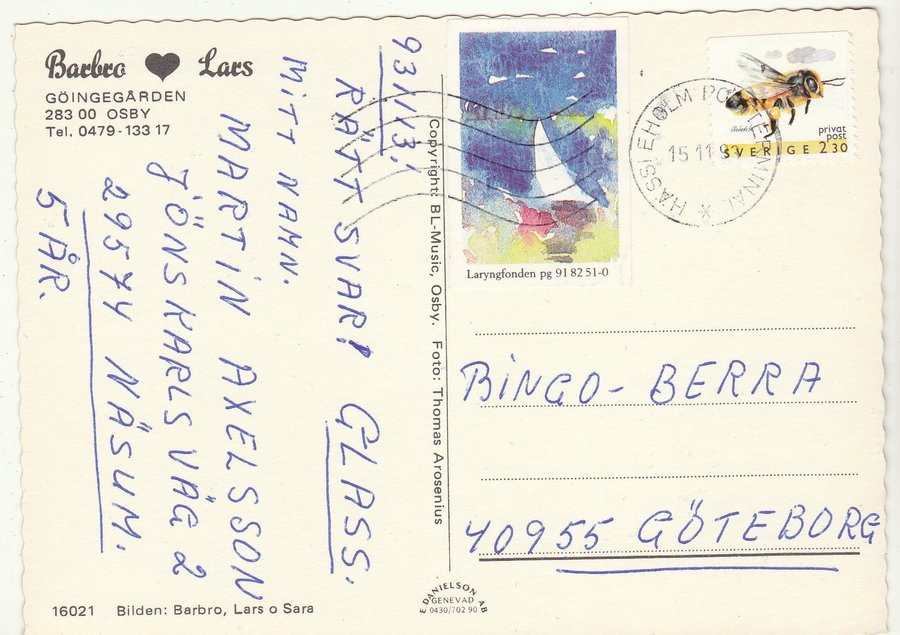 Barbro ♥ Lars
GÖINGEGÅRDEN
283 00 OSBY
Tel. 0479-133 17
931113!
RÄTT SVAR! GLASS.
MITT NAMN.
MARTIN AXELSSON
JÖNSKARLSVÄG 2
29574 NÄSUM.
5 ÅR.
16021 Bilden: Barbro, Lars o Sara
Copyright: BL-Music, Osby. Foto: Thomas Arosenius
E. DANIELSON AB
GENEVAD
0430/702 90
Laryngfonden pg 91 82 51-0
HÄSSLEHOLM POSTTERMINAL *
15 11 93
privat
post
SVERIGE 2.30
BINGO-BERRA
40955 GÖTEBORG